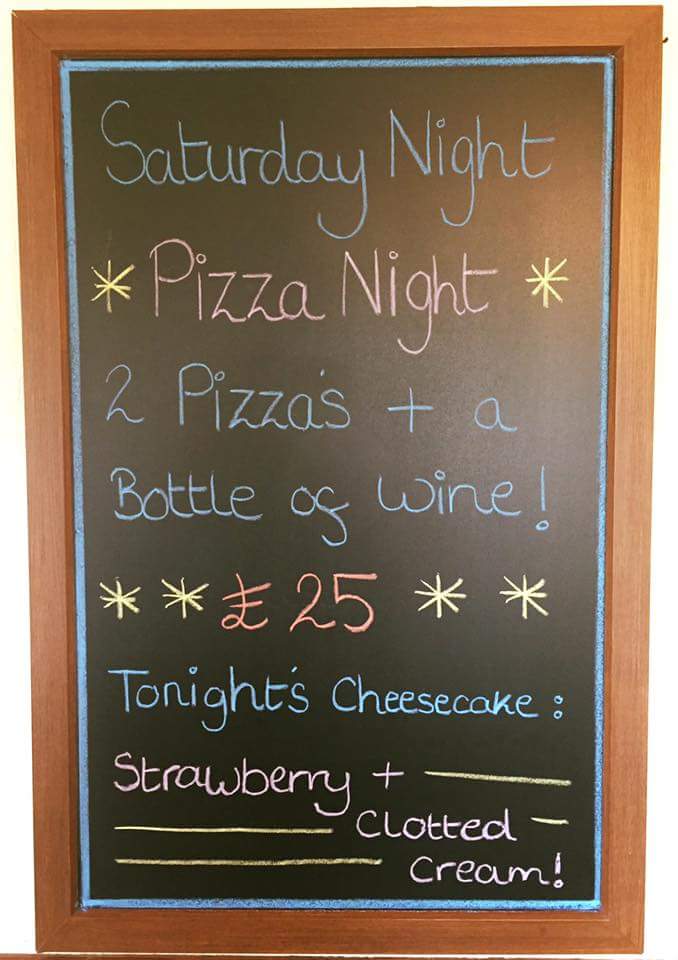 Saturday Night
* Pizza Night *
2 Pizza's + a
Bottle of Wine!
* * £25 * *
Tonight's Cheesecake:
Strawberry +
Clotted
Cream!